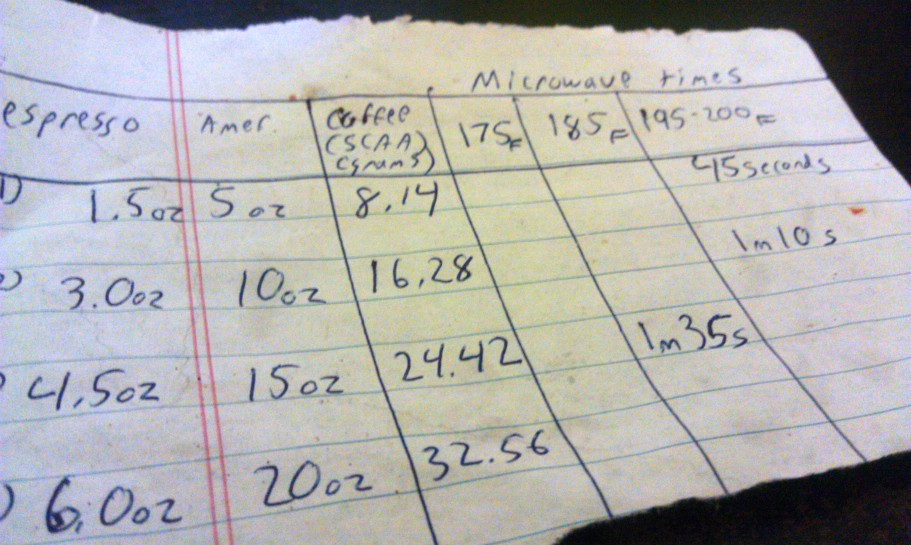 Microwave times
espresso Amer. Coffee (SCAA) (grams) 175F 185F 195-200F
1) 1.5oz 5oz 8.14 45seconds
2) 3.0oz 10oz 16.28 1m10s
) 4.5oz 15oz 24.42 1m35s
) 6.0oz 20oz 32.56